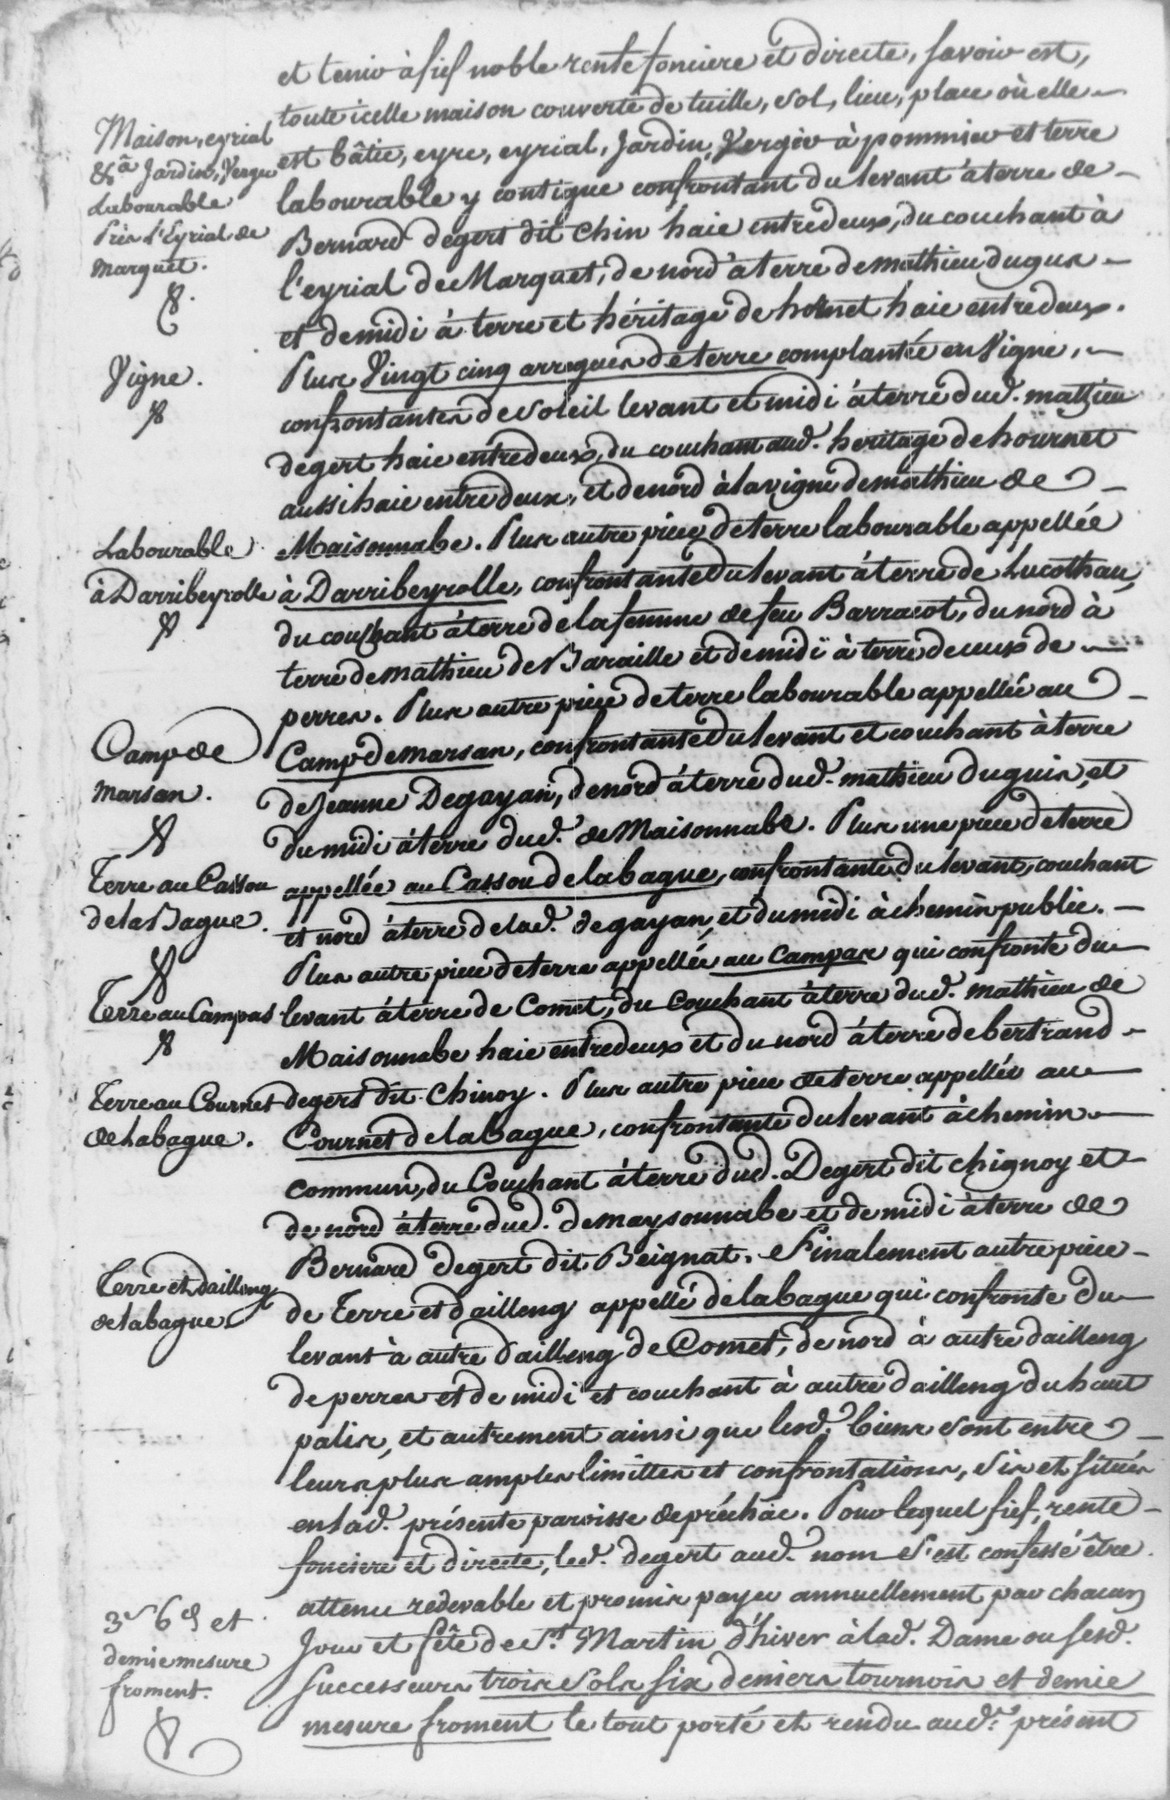 et tenir à fief noble rente fonciere et directe, savoir est,
toute icelle maison couverte de tuille, sol, lieu, place où elle
Maison, eyrial
est bâtie, eyre, eyrial, Jardin, Vergér à pommier et terre
&a Jardin, Verger
Labourable
Près l'Eyrial de
Marquet.
labourable y contigue confrontant du levant à terre de
Bernard degert dit Chin haie entredeux, du couchant à
l'eyrial de Marquet, de nord à terre de mathieu dugua
et de midi à terre et héritage de hornet haie entredeux.
Vigne.
Plus Vingt cinq arregues de terre complantée en Vigne,
confrontantes de soleil levant et midi à terre dud. mathieu
degert haie entredeux, du couchant aud. heritage de hournet
aussi haie entre deux, et de nord à la vigne de mathieu de
Labourable
à Darribeyrolle
Maisonnabe. Plus autre piece de terre labourable appellée
à Darribeyrolle, confrontante du levant à terre de Lucothau,
du couchant à terre de la femme de feu Barracot, du nord à
terre de mathieu de Baraille et de midi à terre de ceux de
perres. Plus autre piece de terre labourable appellée au
Camp de
marsan.
Camp de marsan, confrontante du levant et couchant à terre
de Jeanne Degayan, de nord à terre dud. mathieu duguis, et
du midi à terre dud. de Maisonnabe. Plus une piece de terre
Terre au Cassou
de la Bague.
appellée au Cassou de labague, confrontante du levant, couchant
et nord à terre de lad. degayan, et du midi à chemin public.
Plus autre piece de terre appellée au Campas qui confronte du
Terre au Campas
levant à terre de Comet, du Couchant à terre dud. mathieu de
Maisonnabe haie entredeux et du nord à terre de bertrand
Terre au Cournet
de labague.
degert dit Chinoy. Plus autre piece de terre appellée au
Cournet de labague, confrontante du levant à chemin
commun, du Couchant à terre dud. Degert dit chignoy et
de nord à terre dud. demaysonnabe et de midi à terre de
Bernard degert dit Beignat. Finalement autre piece
Terre et dailleng
de labague.
de Terre et dailleng appellé de labague qui confronte du
levant à autre dailleng de Comet, de nord à autre dailleng
de perres et de midi et couchant à autre dailleng du haut
palis, et autrement ainsi que lesd. biens sont entre
leurs plus amples limittes et confrontations, sis et situés
en lad. présente paroisse de préchac. Pour lequel fief, rente
fonciere et directe, led. degert aud. nom s'est confessé être
attenu redevable et promis payer annuellement par chacun
3s 6d et
demie mesure
froment.
Jour et fête de St Martin d'hiver à lad. Dame ou sesd.
Successeurs trois sols six deniers tournois et demie
mesure froment le tout porté et rendu aud. présent